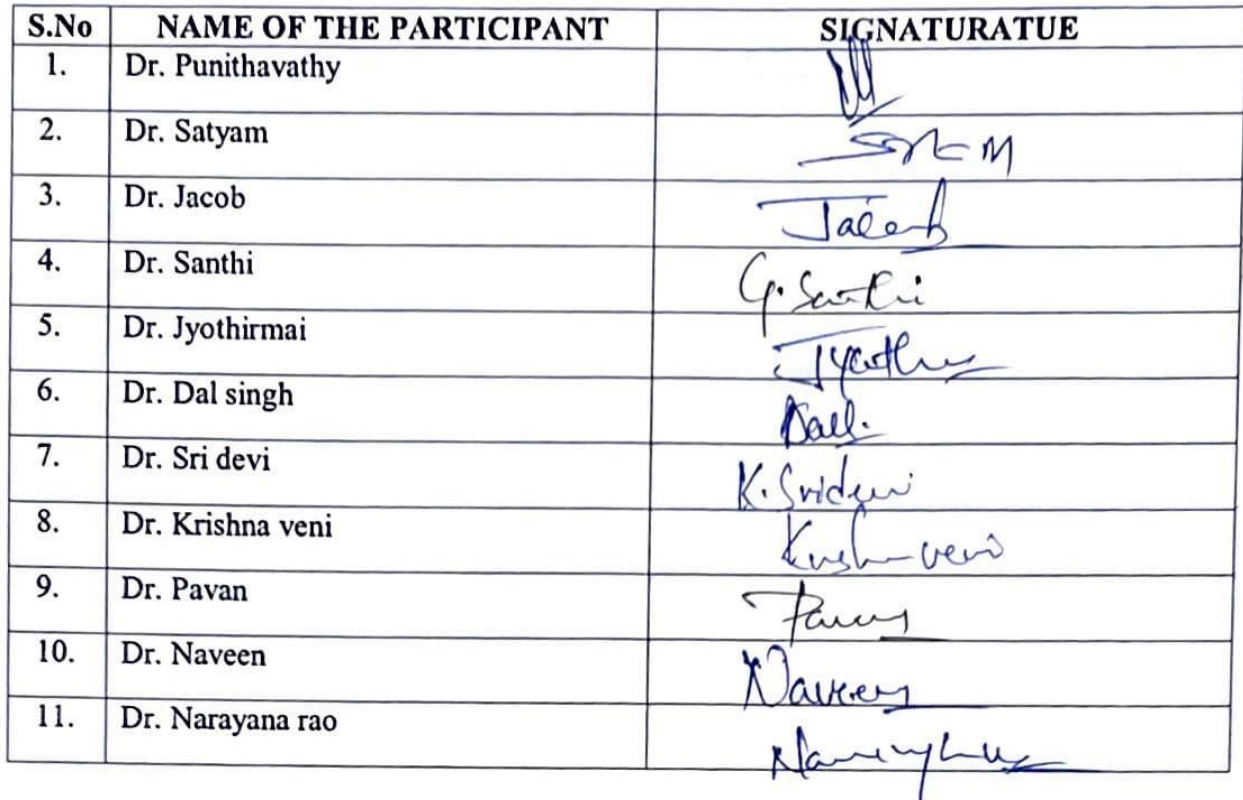 S.No NAME OF THE PARTICIPANT SIGNATURATUE
1. Dr. Punithavathy
2. Dr. Satyam
3. Dr. Jacob Jacob
4. Dr. Santhi G. Santhi
5. Dr. Jyothirmai
6. Dr. Dal singh
7. Dr. Sri devi K. Sridevi
8. Dr. Krishna veni Krishnaveni
9. Dr. Pavan
10. Dr. Naveen Naveen
11. Dr. Narayana rao